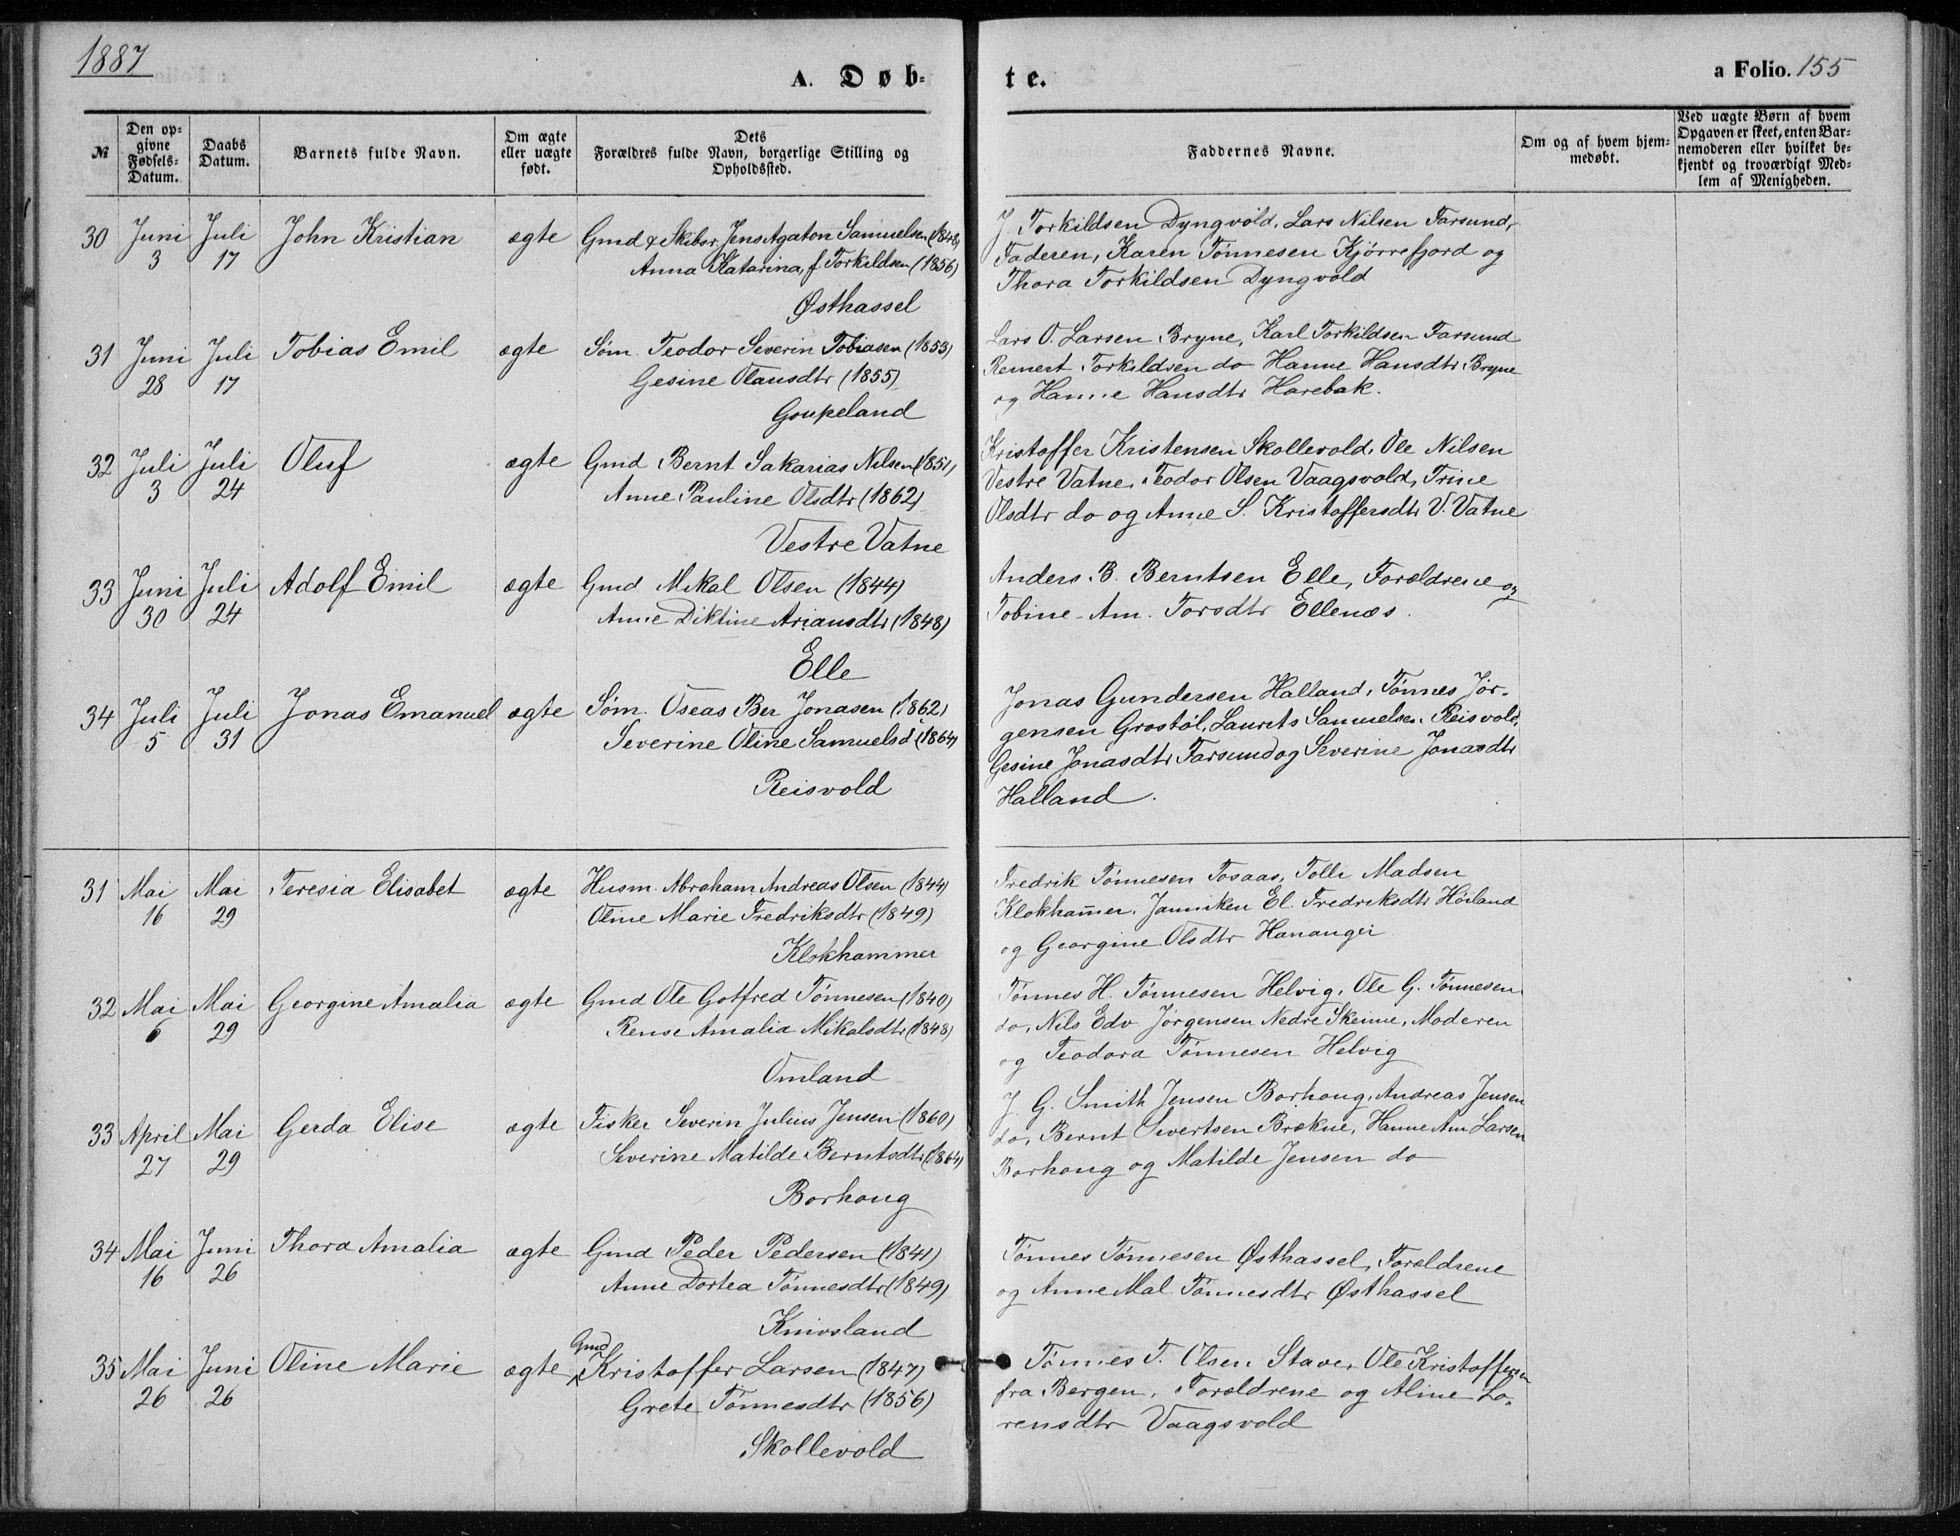 1887
A. Døb-
te.
a Folio. 155
№
Den op-
givne
Fødsels-
Datum.
Daabs
Datum.
Barnets fulde Navn.
Om ægte
eller uægte
født.
Dets
Forældres fulde Navn, borgerlige Stilling og
Opholdssted.
Faddernes Navne.
Om og af hvem hjem-
medøbt.
Ved uægte Børn af hvem
Opgaven er skeet, enten Bar-
nemoderen eller hvilket be-
kjendt og troværdigt Med-
lem af Menigheden.
30 Juni 3 Juli 17 John Kristian ægte Gmd & Skibsr. Jens Agaton Samuelsen
Anna Katarina, f. Torkildsen (1856)
Østhassel
J. Torkildsen Dyngvold, Lars Nilsen Farsund,
Faderen, Karen Tønnesen Kjørrefjord og
Thora Torkildsen Dyngvold
31 Juni 28 Juli 17 Tobias Emil ægte Søm. Teodor Severin Tobiasen (1853)
Gesine Olausdtr (1855)
Goupeland
Lars O. Larsen Bryne, Karl Torkildsen Farsund
Reinert Torkildsen do Hanne Hansdtr Bryne
og Hanne Hansdtr Harebak.
32 Juli 3 Juli 24 Oluf ægte Gmd Bernt Sakarias Nilsen (1851)
Anne Pauline Olsdtr (1862)
Vestre Vatne
Kristoffer Kristensen Skollevold, Ole Nilsen
Vestre Vatne, Teodor Olsen Vaagsvold, Trine
Olsdtr do og Anne S. Kristoffersdtr V. Vatne
33 Juni 30 Juli 24 Adolf Emil ægte Gmd Mikal Olsen (1844)
Anne Diktine Ariansdtr (1848)
Elle
Anders B. Berntsen Elle, Forældrene og
Tobine Am. Torsdtr Ellenæs.
34 Juli 5 Juli 31 Jonas Emanuel ægte Søm. Oseas Ber Jonasen (1862)
Severine Oline Samuelsd (1864)
Reisvold
Jonas Gundersen Halland, Tønnes Jør-
gensen Grostøl, Laurits Samuelsen Reisvold,
Gesine Jonasdtr Farsund og Severine Jonasdtr
Halland.
31 Mai 16 Mai 29 Teresia Elisabet ægte Husm. Abraham Andreas Olsen (1844)
Oline Marie Fredriksdtr (1849)
Klokhammer
Fredrik Tønnesen Tosaas, Tolli Madsen
Klokham̄er, Janniken El. Fredriksdtr Høiland
og Georgine Olsdtr Hananger
32 Mai 6 Mai 29 Georgine Amalia ægte Gmd Ole Gotfred Tønnesen (1840)
Rense Amalia Mikalsdtr (1848)
Omland
Tønnes H. Tønnesen Helvig, Ole G. Tønnesen
do, Nils Edv Jørgensen Nedre Skeime, Moderen
og Teodora Tønnesen Helvig
33 April 27 Mai 29 Gerda Elise ægte Fisker Severin Julius Jensen (1860)
Severine Matilde Berntsdtr (1864)
Borhoug
J. G. Smith Jensen Borhoug, Andreas Jensen
do, Bernt Sivertsen Brække, Hanne Am Larsen
Borhoug og Matilde Jensen do
34 Mai 16 Juni 26 Thora Amalia ægte Gmd Peder Pedersen (1841)
Anne Dortea Tønnesdtr (1849)
Knivsland
Tønnes Tønnesen Østhassel, Forældrene
og Anne Mal. Tønnesdtr Østhassel
35 Mai 26 Juni 26 Oline Marie ægte Gmd Kristoffer Larsen (1847)
Grete Tønnesdtr (1856)
Skollevold
Tønnes T. Olsen Stave, Ole Kristoffersen
fra Bergen, Forældrene og Aline Lo-
rensdtr Vaagsvold